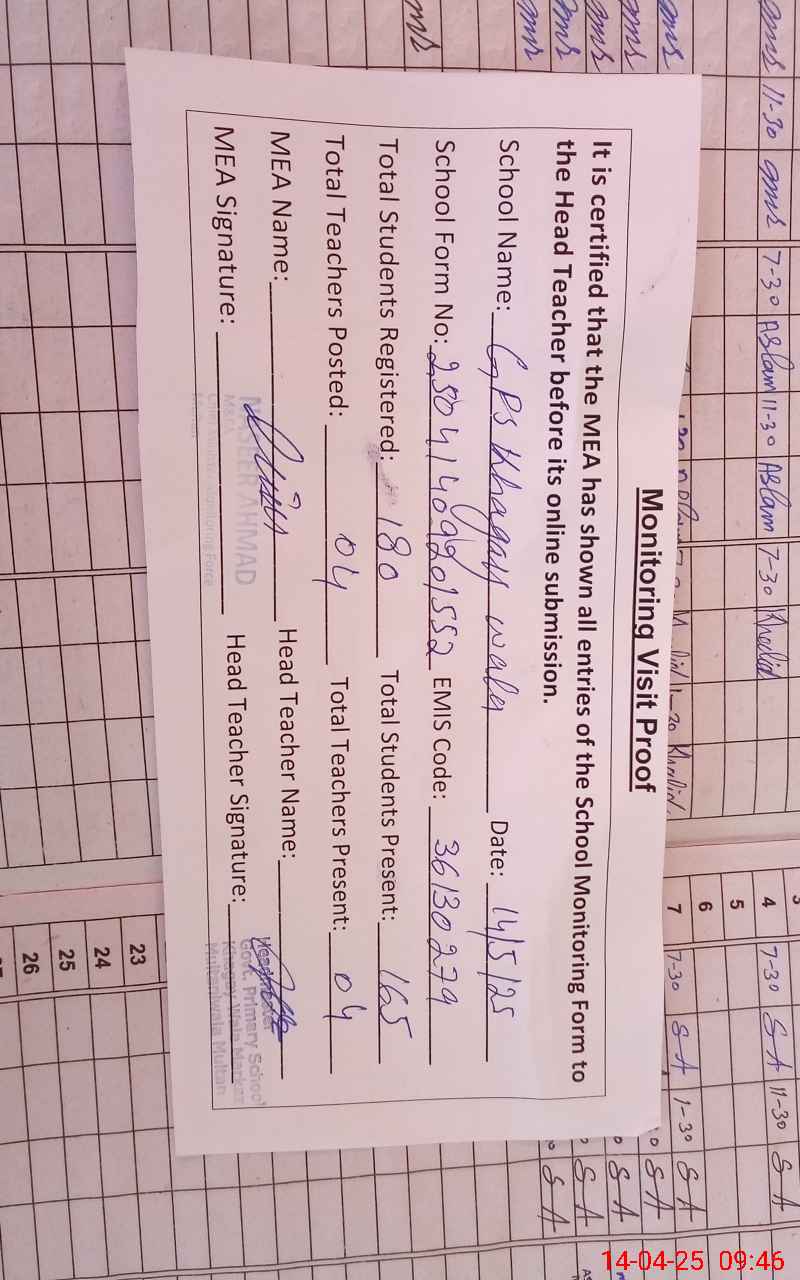 Monitoring Visit Proof
It is certified that the MEA has shown all entries of the School Monitoring Form to
the Head Teacher before its online submission.
School Name: GPS Khagay wala Date: 14/5/25
School Form No: 25041409201552 EMIS Code: 36130279
Total Students Registered: 180 Total Students Present: 165
Total Teachers Posted: 04 Total Teachers Present: 04
MEA Name: Head Teacher Name:
MEA Signature: Head Teacher Signature:
AHMAD
MEA
Monitoring Force
Headmaster
Govt. Primary School
Wala Markaz
Multan
11-30
7-30 Aslam 11-30 Aslam 7-30 Khalid
Khalid
4 7-30 S A 11-30 S A
5
6
7 7-30 S A 1-30 S A
S A
S A
S A
S A
23
24
25
26
14-04-25 09:46